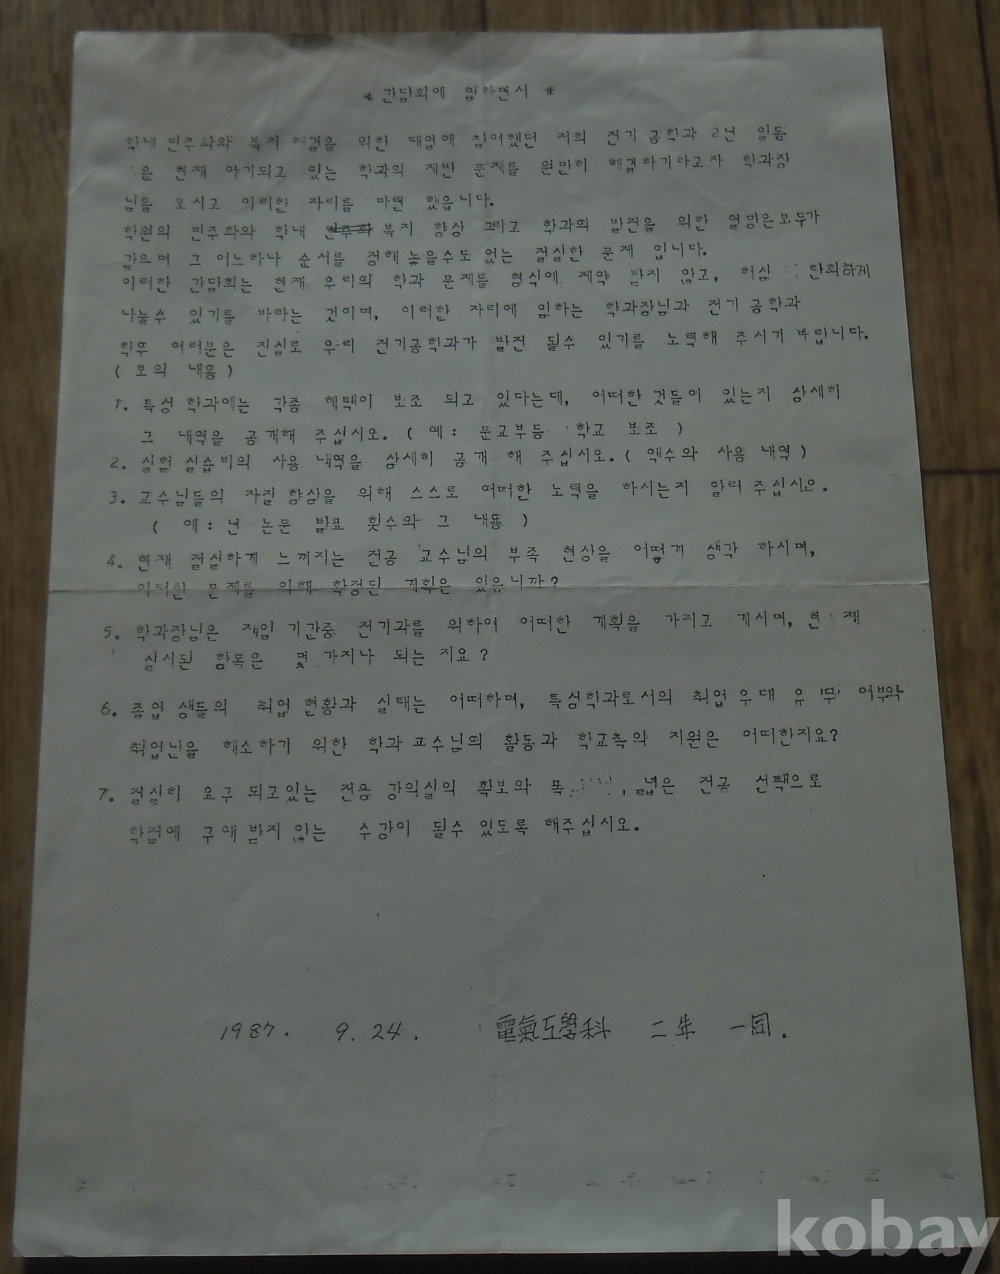 * 간담회에 임하면서 *
학내 민주화와 복지 해결을 위한 대열에 참여했던 저희 전기 공학과 2년 일동
은 현재 야기되고 있는 학과의 제반 문제를 원만히 해결하기하고자 학과장
님을 모시고 이러한 자리를 마련 했읍니다.
학원의 민주화와 학내 복지 향상 그리고 학과의 발전을 위한 열망은모두가
같으며 그 어느하나 순서를 정해 놓을수도 없는 절실한 문제 입니다.
이러한 간담회는 현재 우리의 학과 문제를 형식에 제약 받지 않고, 허심 탄회하게
나눌수 있기를 바라는 것이며, 이러한 자리에 임하는 학과장님과 전기 공학과
학우 여러분은 진실로 우리 전기공학과가 발전 될수 있기를 노력해 주시기 바랍니다.
( 모의 내용 )
1. 특성 학과에는 각종 혜택이 보조 되고 있다는데, 어떠한 것들이 있는지 상세히
그 내역을 공개해 주십시오. ( 예 : 문교부등 학교 보조 )
2. 실험 실습비의 사용 내역을 상세히 공개 해 주십시오. ( 액수와 사용 내역 )
3. 교수님들의 자질 향상을 위해 스스로 어떠한 노력을 하시는지 알려 주십시오.
( 예 : 년 논문 발표 횟수와 그 내용 )
4. 현재 절실하게 느껴지는 전공 교수님의 부족 현상을 어떻게 생각 하시며,
이러한 문제를 위해 확정된 계획은 있읍니까?
5. 학과장님은 재임 기간중 전기과를 위하여 어떠한 계획을 가지고 계시며, 현 재
실시된 항목은 몇 가지나 되는 지요?
6. 졸업 생들의 취업 현황과 실태는 어떠하며, 특성학과로서의 취업 우대 유 무 여부와
취업난을 해소하기 위한 학과 교수님의 활동과 학교측의 지원은 어떠한지요?
7. 절실히 요구 되고있는 전용 강의실의 확보와 폭 넓은 전공 선택으로
학점에 구애 받지 않는 수강이 될수 있도록 해주십시오.
1987. 9. 24. 電氣工學科 二年 一同.
kobay